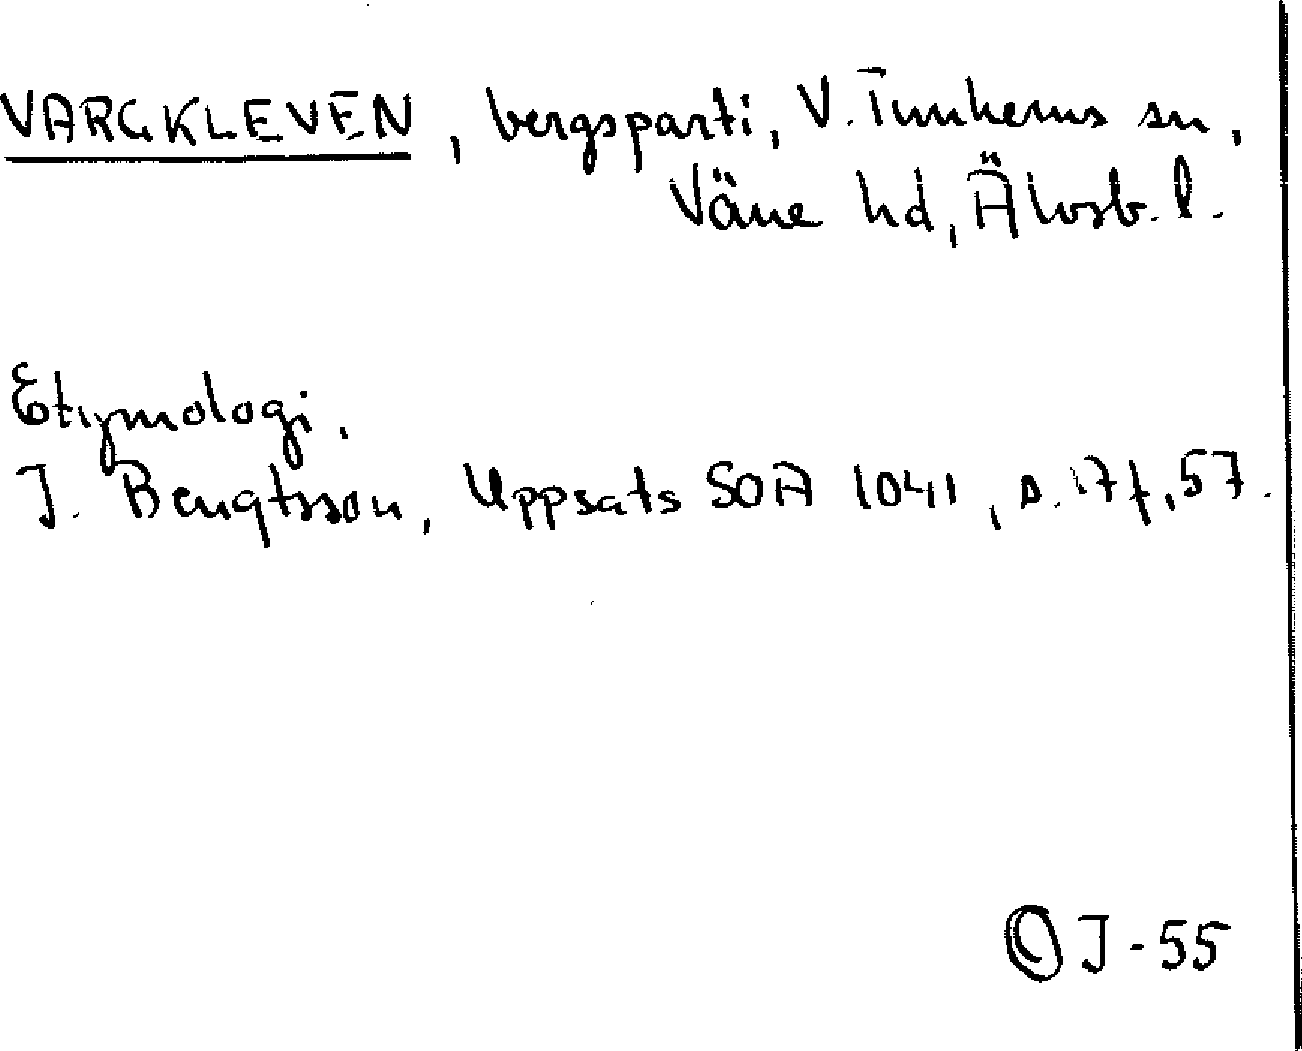 VARGKLEVEN, bergsparti, V. Tunhems sn,
Väne hd, Älvsb. l.
Etymologi.
J. Bengtsson, Uppsats SOA 1041, s. 17f, 57.
OJ-55